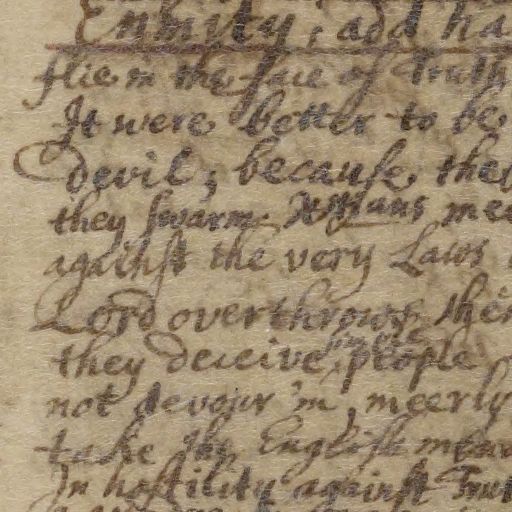 Enmity, add ha
flie in the face of Truth
It were better to be
devil, because, the
they swarm. mee
against the very Laws
Lord overthrows the
they deceive people
not devour 'm, meerly
take the English
In hostility against Trut